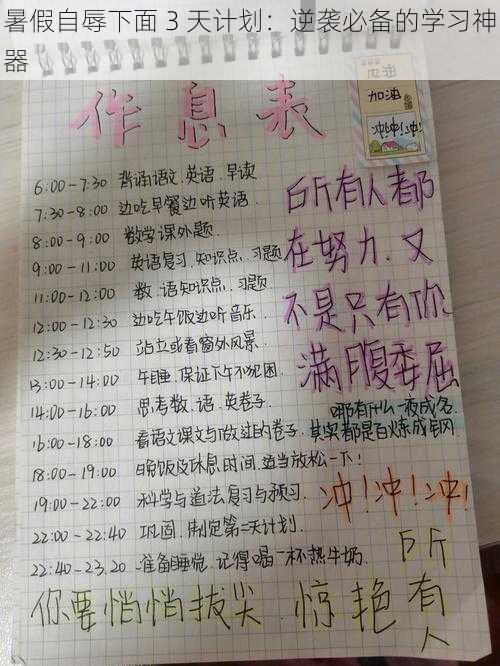 暑假自辱下面 3 天计划：逆袭必备的学习神
器
作息表
加油
加油
冲!冲!冲!
6:00-7:30 背诵语文.英语.早读
7:30-8:00 边吃早餐边听英语.
8:00-9:00 数学课外题.
9:00-11:00 英语复习.知识点.习题
11:00-12:00 数.语知识点.习题.
12:00-12:30 边吃午饭边听音乐.
12:30-12:50 站立或看窗外风景.
13:00-14:00 午睡.保证下午不犯困.
14:00-16:00 思考数.语.英卷子.
16:00-18:00 看语文课文与做过的卷子.
18:00-19:00 晚饭及休息时间.适当放松一下!
19:00-22:00 科学与道法复习与预习.
22:00-22:40 巩固.制定第二天计划.
22:40-23.20 准备睡觉.记得喝一杯热牛奶.
所有人都
在努力.又
不是只有你
满腹委屈
哪有什么一夜成名.
其实都是百炼成钢
冲!冲!冲!
你要悄悄拔尖.惊艳所有人